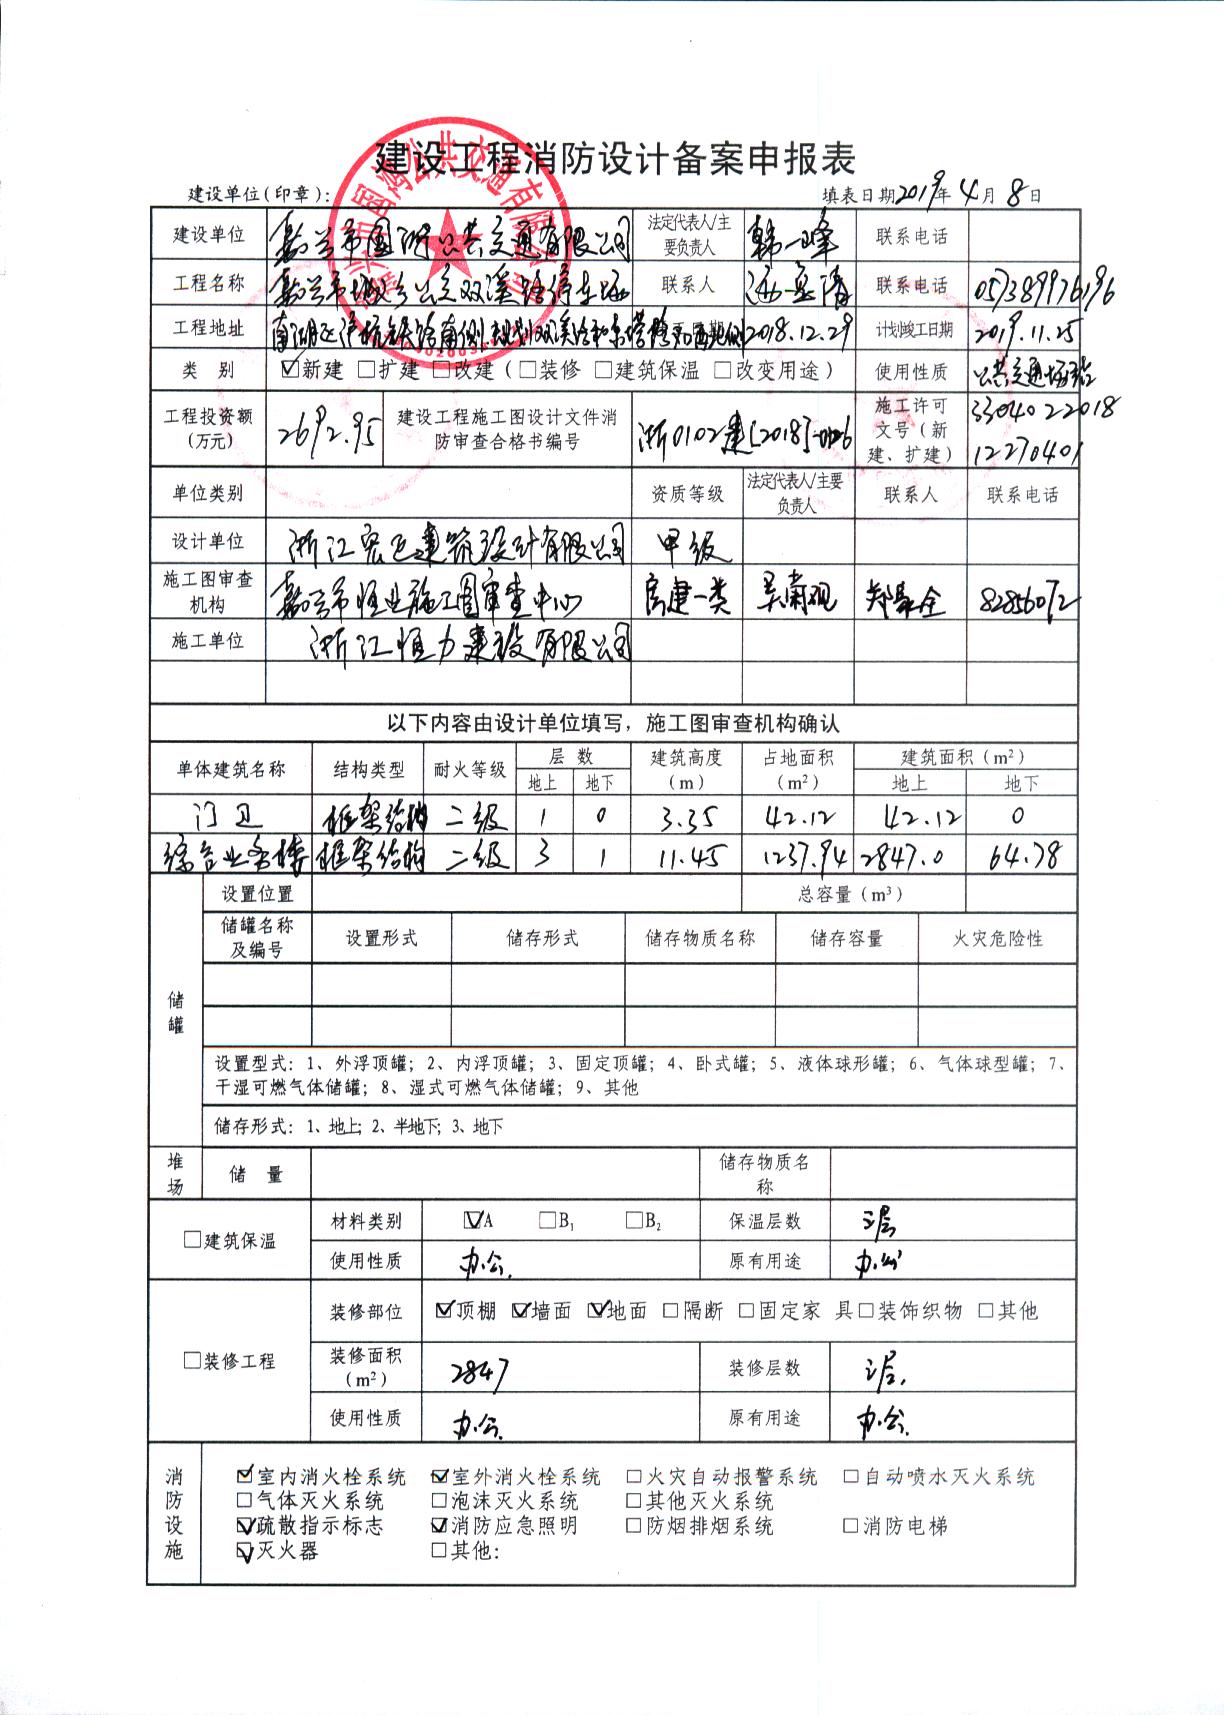 建设工程消防设计备案申报表
建设单位(印章): 填表日期2019年4月8日
建设单位 嘉兴市国鸿公共交通有限公司 法定代表人/主要负责人 韩一峰 联系电话
工程名称 嘉兴市城乡公交双溪路停车场 联系人 联系电话 057389976196
工程地址 南湖区 南侧、规划双溪路和 日期 2018.12.29 计划竣工日期 2019.11.25
类 别 ☑新建 □扩建 □改建(□装修 □建筑保温 □改变用途) 使用性质 公共交通场站
工程投资额(万元) 2692.95 建设工程施工图设计文件消防审查合格书编号 浙0102建[2018]-0126 施工许可文号(新建、扩建) 330402201812270401
单位类别 资质等级 法定代表人/主要负责人 联系人 联系电话
设计单位 浙江宏正建筑设计有限公司 甲级
施工图审查机构 嘉兴市恒业施工图审查中心 房建一类 82856072
施工单位 浙江恒力建设有限公司
以下内容由设计单位填写，施工图审查机构确认
单体建筑名称 结构类型 耐火等级 层 数 建筑高度(m) 占地面积(m²) 建筑面积(m²)
地上 地下 地上 地下
门卫 框架结构 二级 1 0 3.35 42.12 42.12 0
综合业务楼 框架结构 二级 3 1 11.45 1237.94 2847.0 64.78
储罐
设置位置 总容量(m³)
储罐名称及编号 设置形式 储存形式 储存物质名称 储存容量 火灾危险性
设置型式：1、外浮顶罐；2、内浮顶罐；3、固定顶罐；4、卧式罐；5、液体球形罐；6、气体球型罐；7、
干湿可燃气体储罐；8、湿式可燃气体储罐；9、其他
储存形式：1、地上；2、半地下；3、地下
堆场 储 量 储存物质名称
□建筑保温 材料类别 ☑A □B₁ □B₂ 保温层数 3层
使用性质 办公. 原有用途 办公
□装修工程 装修部位 ☑顶棚 ☑墙面 ☑地面 □隔断 □固定家 具□装饰织物 □其他
装修面积(m²) 2847 装修层数 3层.
使用性质 办公. 原有用途 办公.
消防设施
☑室内消火栓系统 ☑室外消火栓系统 □火灾自动报警系统 □自动喷水灭火系统
□气体灭火系统 □泡沫灭火系统 □其他灭火系统
☑疏散指示标志 ☑消防应急照明 □防烟排烟系统 □消防电梯
☑灭火器 □其他: